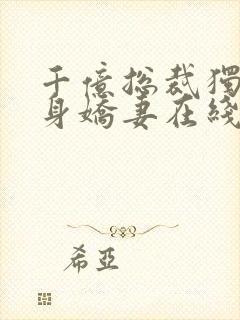 千億总裁獨
身嬌妻在綫
希亞